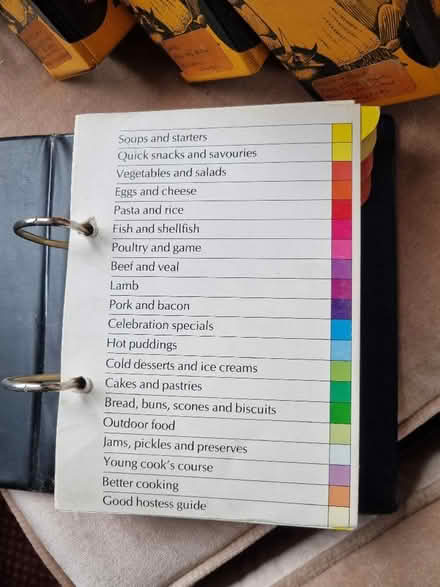 Soups and starters
Quick snacks and savouries
Vegetables and salads
Eggs and cheese
Pasta and rice
Fish and shellfish
Poultry and game
Beef and veal
Lamb
Pork and bacon
Celebration specials
Hot puddings
Cold desserts and ice creams
Cakes and pastries
Bread, buns, scones and biscuits
Outdoor food
Jams, pickles and preserves
Young cook's course
Better cooking
Good hostess guide